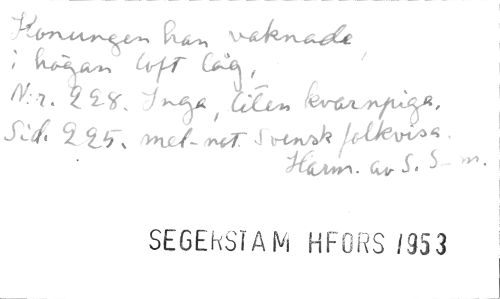 Konungen han vaknade,
i högan loft låg,
N:r. 228. Inga, liten kvarnpiga.
Sid. 225. mel-not. Svensk folkvisa.
Harm. av S. S-m.
SEGERSTAM HFORS 1953